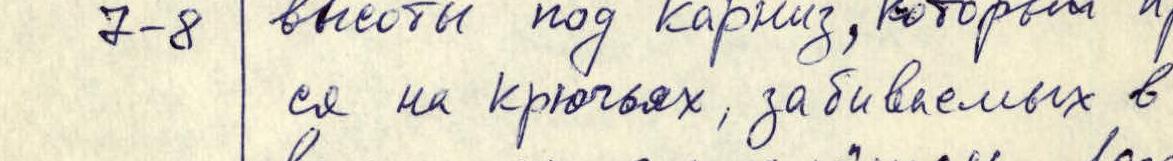 7-8 высоты под карниз, который
ся на крючьях, забиваемых в